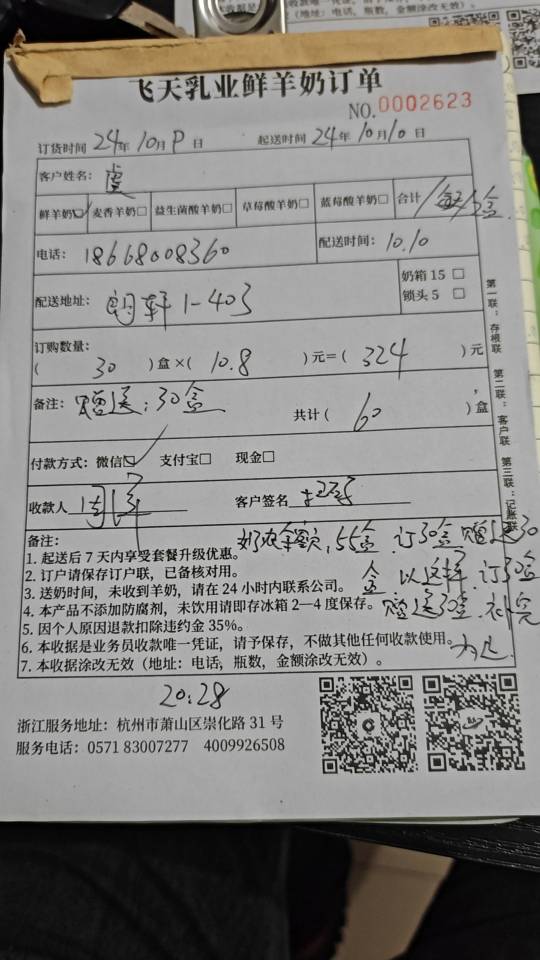 飞天乳业鲜羊奶订单
NO.0002623
订货时间 24年10月9日 起送时间 24年10月10日
客户姓名: 虞
鲜羊奶☑ 麦香羊奶□ 益生菌酸羊奶□ 草莓酸羊奶□ 蓝莓酸羊奶□ 合计 盒
电话: 18668008360 配送时间: 10.10
配送地址: 轩1-403
奶箱 15 □
锁头 5 □
订购数量:
( 30 )盒×( 10.8 )元=( 324 )元
备注: 赠送:30盒 共计( 60 )盒
付款方式: 微信☑ 支付宝□ 现金□
收款人 客户签名:
第一联:存根联 第二联:客户联 第三联:记账联
备注:
1. 起送后 7 天内享受套餐升级优惠。
2. 订户请保存订户联,已备核对用。
3. 送奶时间,未收到羊奶,请在 24 小时内联系公司。
4. 本产品不添加防腐剂,未饮用请即存冰箱 2—4 度保存。
5. 因个人原因退款扣除违约金 35%。
6. 本收据是业务员收款唯一凭证,请予保存,不做其他任何收款使用。
7. 本收据涂改无效(地址:电话,瓶数,金额涂改无效)。
余额,55盒.订30盒赠送30
盒 以这样.订30盒
赠送30盒.补完
为止
20:28
浙江服务地址:杭州市萧山区崇化路 31 号
服务电话:0571 83007277 4009926508
(地址:电话,瓶数,金额涂改无效)。